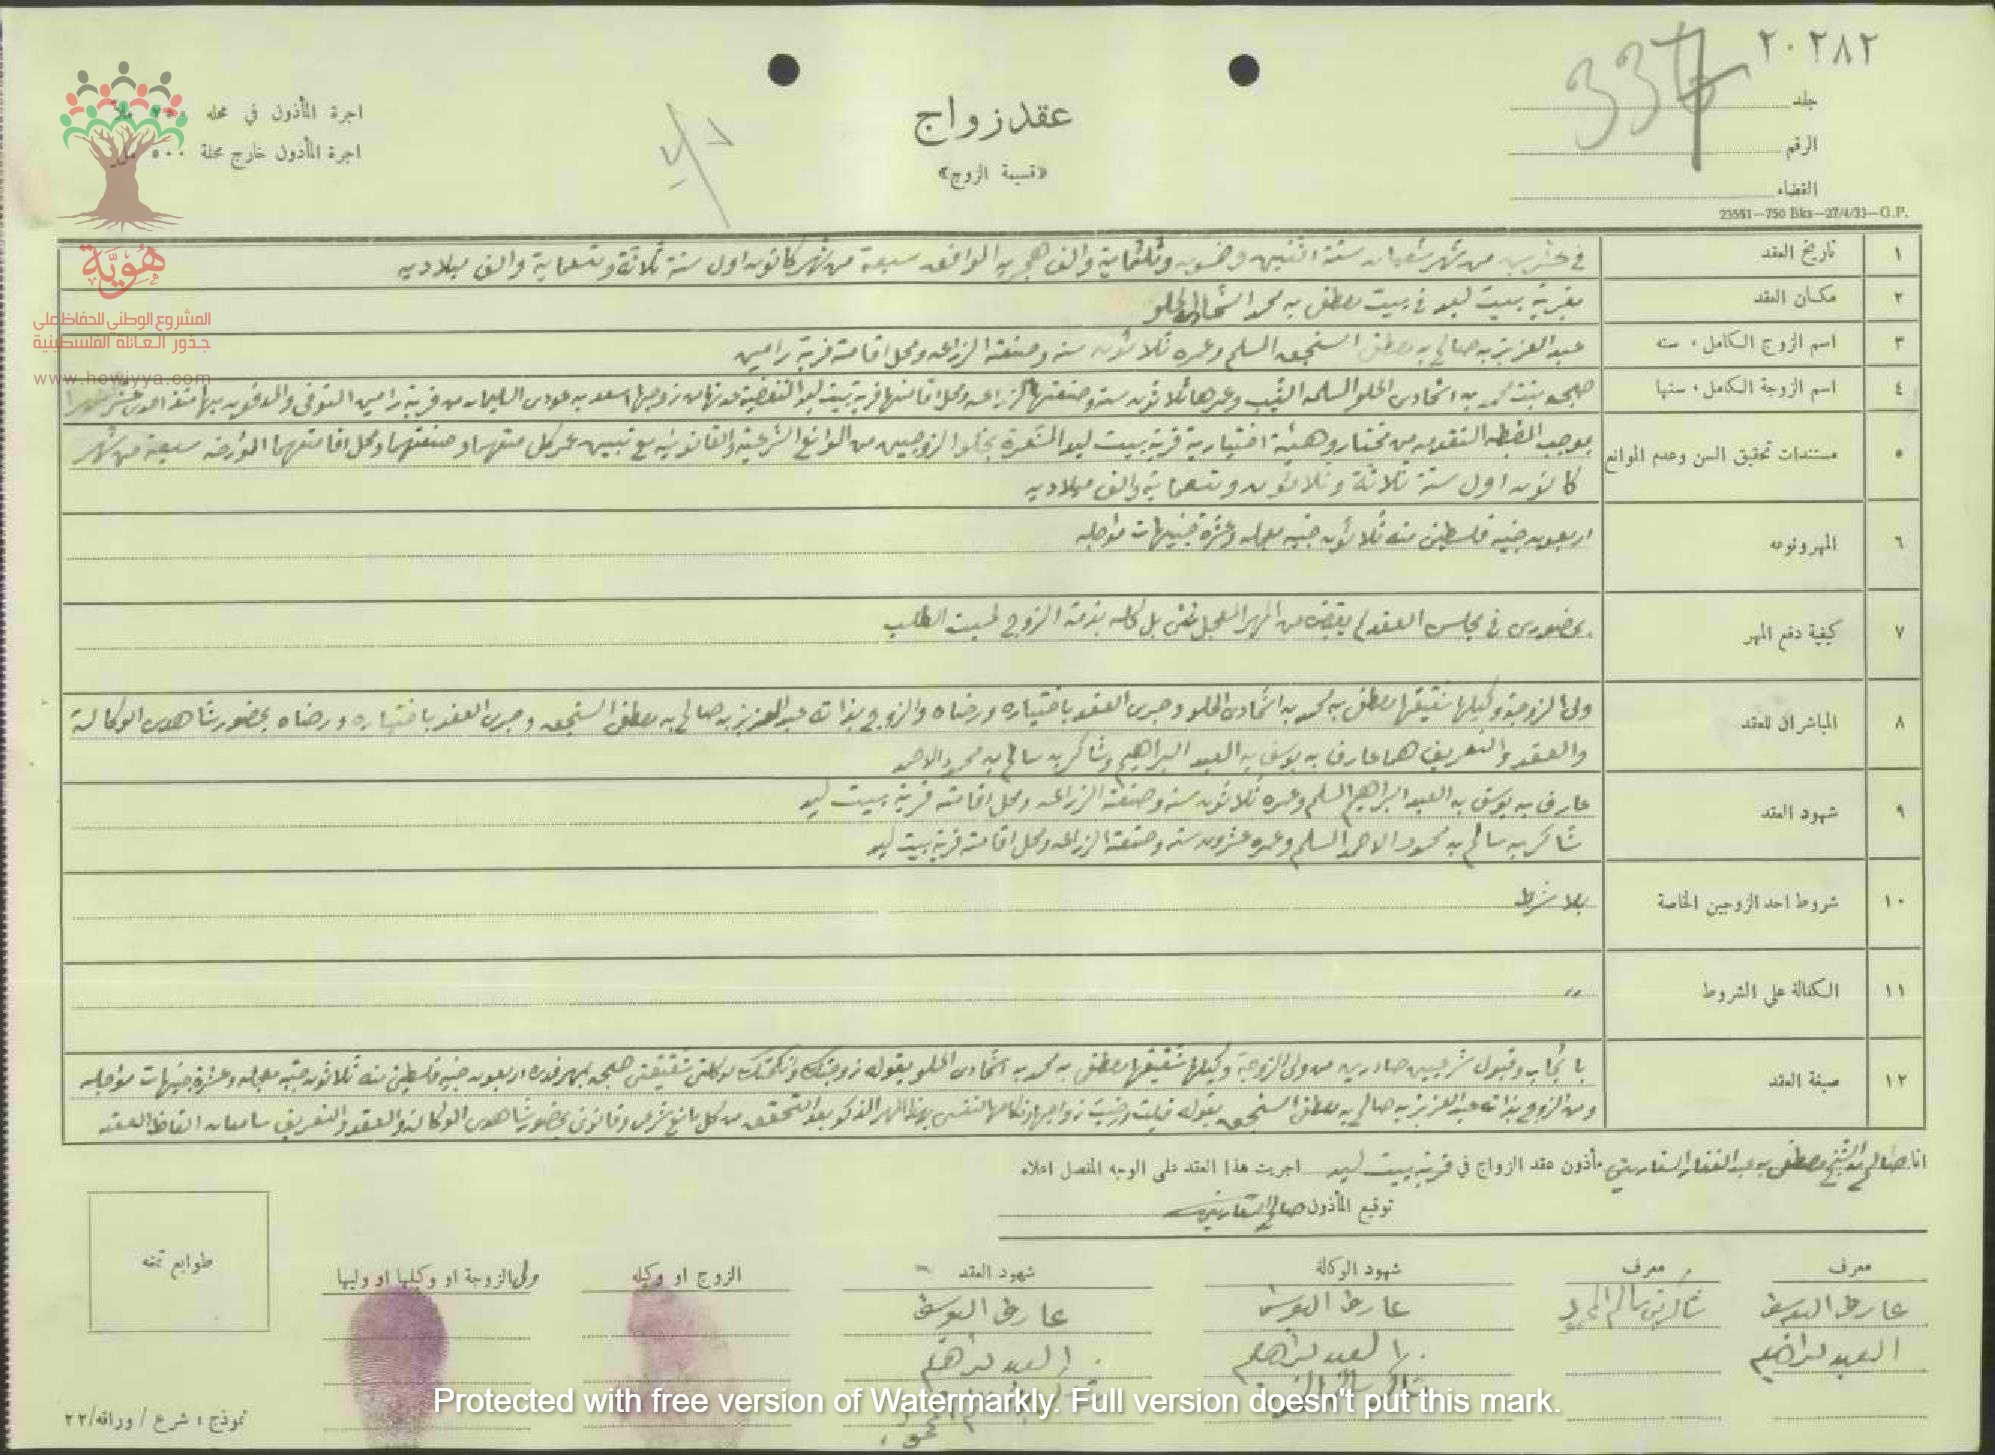 ٢٠٢٨٢
337
جلد
الرقم
القضاء
23551—750 Bks—27/4/33—G.P.
عقد زواج
«قسيمة الزوج»
اجرة المأذون في محله ملاً
اجرة المأذون خارج محلة ٥٠٠
هُويَّة
المشروع الوطني للحفاظ على
جذور العائلة الفلسطينية
www.howiyya.com
١ تاريخ العقد في عشرين من شهر شعبان سنة اثنين وخمسون وثلثماية والف هجريه الموافق سبعة من شهر كانون اول سنة ثلاثة وتسعماية والف ميلاديه
٢ مكان العقد بقرية بيت ليد في بيت مصطفى بن محمد اشحادى الحلو
٣ اسم الزوج الكامل، سنه عبد العزيز بن صالح بن مصطفى السنجق المسلم وعمره ثلاثون سنه وصنعته الزراعه ومحل اقامته قرية رامين
٤ اسم الزوجة الكامل، سنها صبحه بنت محمد بن اشحادى الحلو المسلمه الثيب وعمرها ثلاثون سنه وصنعتها الزراعه ومحل اقامتها قرية بيت ليد المنقضية عدتها من زوجها اسعد بن عودى السليمان من قرية رامين المتوفى والمدفون بها منذ احدى عشر شهرا
٥ مستندات تحقيق السن وعدم الموانع بموجب المضبطه المتقدمه من مختار وهيئة اختيارية قرية بيت ليد المشعرة بخلو الزوجين من الموانع الشرعية والقانونيه مع تبيين عمر كل منهما وصنعتهما ومحل اقامتهما المؤرخه سبعة من شهر
كانون اول سنة ثلاثة وثلاثون وتسعماية والف ميلاديه
٦ المهر ونوعه اربعون جنيه فلسطيني منه ثلاثون جنيه معجله وعشرة جنيهات مؤجله
٧ كيفية دفع المهر بحضورى في مجلس العقد لم يقبض من المهر المعجل شئ بل كله بذمة الزوج لحيت الطلب
٨ المباشران للعقد ولى الزوجة وكيلها شقيقها مصطفى بن محمد بن اشحادى الحلو وجرى العقد باختياره ورضاه والزوج بذاته عبد العزيز بن صالح بن مصطفى السنجق وجرى العقد باختياره ورضاه بحضور شاهدى الوكالة
والعقد والتعريف هما عارف بن يوسف بن العبد البراهيم وشاكر بن سالم بن محمود الاحمد
٩ شهود العقد عارف بن يوسف بن العبد البراهيم المسلم وعمره ثلاثون سنه وصنعته الزراعه ومحل اقامته قرية بيت ليد
شاكر بن سالم بن محمود الاحمد المسلم وعمره عشرون سنه وصنعته الزراعه ومحل اقامته قرية بيت ليد
١٠ شروط احد الزوجين الخاصة بلا شرط
١١ الكفالة على الشروط " "
١٢ صيغة العقد بايجاب وقبول شرعيين صادرين من ولى الزوجة وكيلها شقيقها مصطفى بن محمد بن اشحادى الحلو بقوله زوجتك وانكحتك موكلتي شقيقتي صبحه بمهر قدره اربعون جنيه فلسطيني منه ثلاثون جنيه معجله وعشرة جنيهات مؤجله
ومن الزوج بذاته عبد العزيز بن صالح بن مصطفى السنجق بقوله قبلت ورضيت زواجها ونكاحها لنفسي بهذا المهر المذكور بعد التحقق من كل مانع شرعي وقانوني بحضور شاهدى الوكالة والعقد والتعريف سامعان الفاظ العقد
انا صالح بن الشيخ مصطفى بن عبد الغفار السفاريني مأذون عقد الزواج في قرية بيت ليد اجريت هذا العقد على الوجه المفصل اعلاه
توقيع المأذون صالح السفاريني
معرف معرف شهود الوكالة شهود العقد الزوج او وكيله ولى الزوجة او وكيلها او وليها
عارف اليوسف شاكر بن سالم المحمود عارف اليوسف عارف اليوسف
العبد براهيم العبد براهيم العبد براهيم
طوابع تمغه
نموذج: شرع / وراقه/٢٢
Protected with free version of Watermarkly. Full version doesn't put this mark.